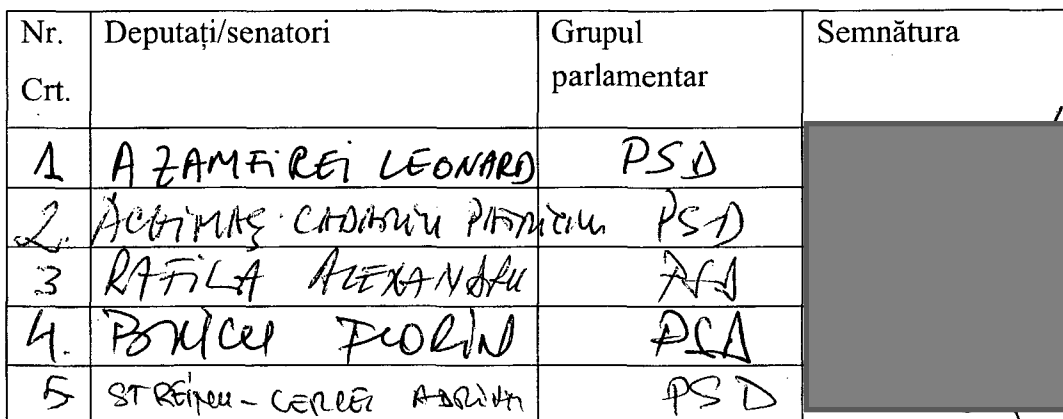 Nr. Crt. Deputați/senatori Grupul parlamentar Semnătura
1 AZAMFIREI LEONARD PSD
2. ACHIMAȘ CADARIU PATRICIU PSD
3 RAFILA ALEXANDRU PSD
4. FLORIN PSD
5 STREINU-CERCEL ADRIAN PSD